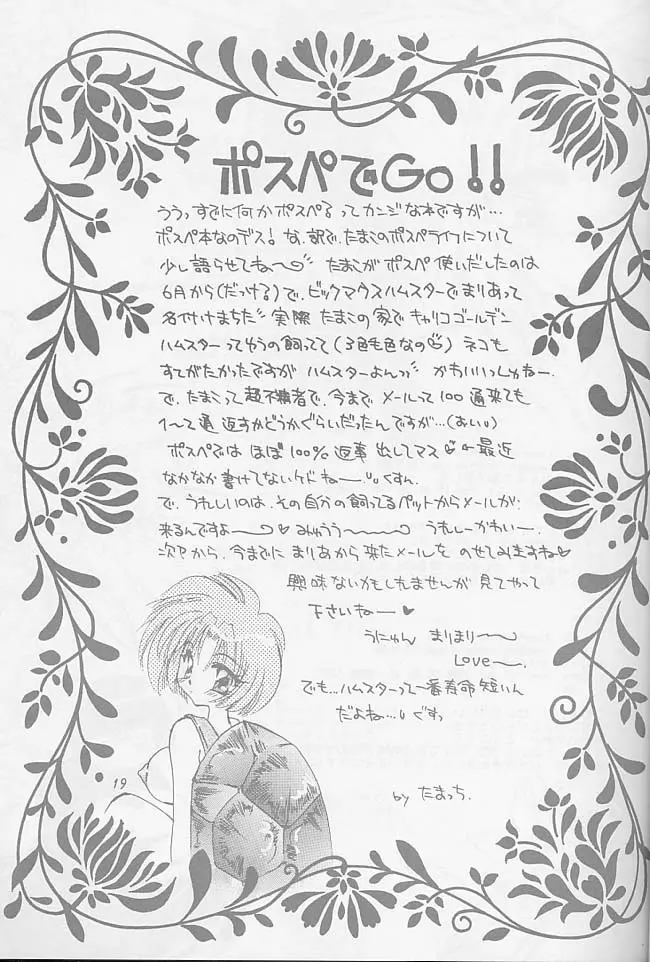 ポスペでGo!!
ううっすでに何かポスペるってカンジな本ですが…
ポスペ本なのデス! な、部で、たまこのポスペライフについて
少し語らせてね〜 たまこが ポスペ 使いだしたのは
6月から(だっける)で、ビックマウスハムスターでまりあって
名付けまちた 実際 たまこの家でキャリコゴールデン
ハムスターってゆうの飼ってて(3色毛色なの) ネコも
すてがたかったですが ハムスターよんっ かわいいっしゅねー.
で、たまこって超不精者で、今まで メールって100通来ても
1〜て通 返すかどうかぐらいだったんですが…(おい)
ポスペでは ほぼ100%返事 出してマス ← 最近
なかなか書けてないケドねー くすん.
で、うれしいのは、その自分の飼ってるペットからメールが
来るんですよー♡ みゅうう〜 うれしーかわいー.
次Pから、今までに まりあから来たメールを のせてみますね♡
興味ないかもしれませんが 見てやって
下さいねー♥
うにゅん まりまり〜
Love〜.
でも…ハムスターって一番寿命短いん
だよね… ぐすっ
19
by たまっち.